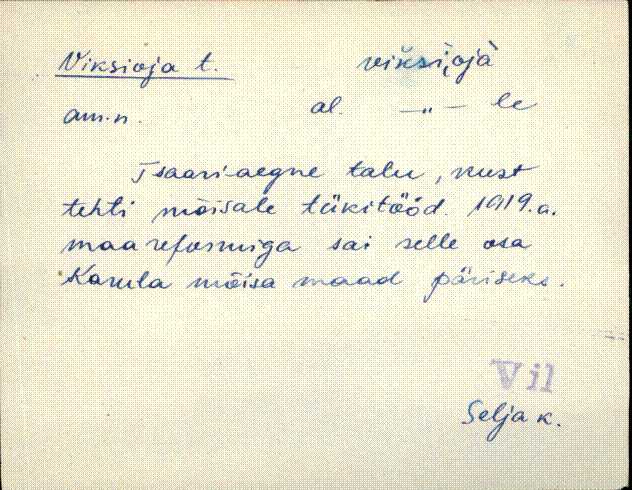 Viksioja t. vìksi,ojà
am.n. al. —„— le
Tsaariaegne talu, kust
tehti mõisale tükitööd. 1919.a.
maareformiga sai selle osa
Karula mõisa maad päriseks.
Vil
Selja k.